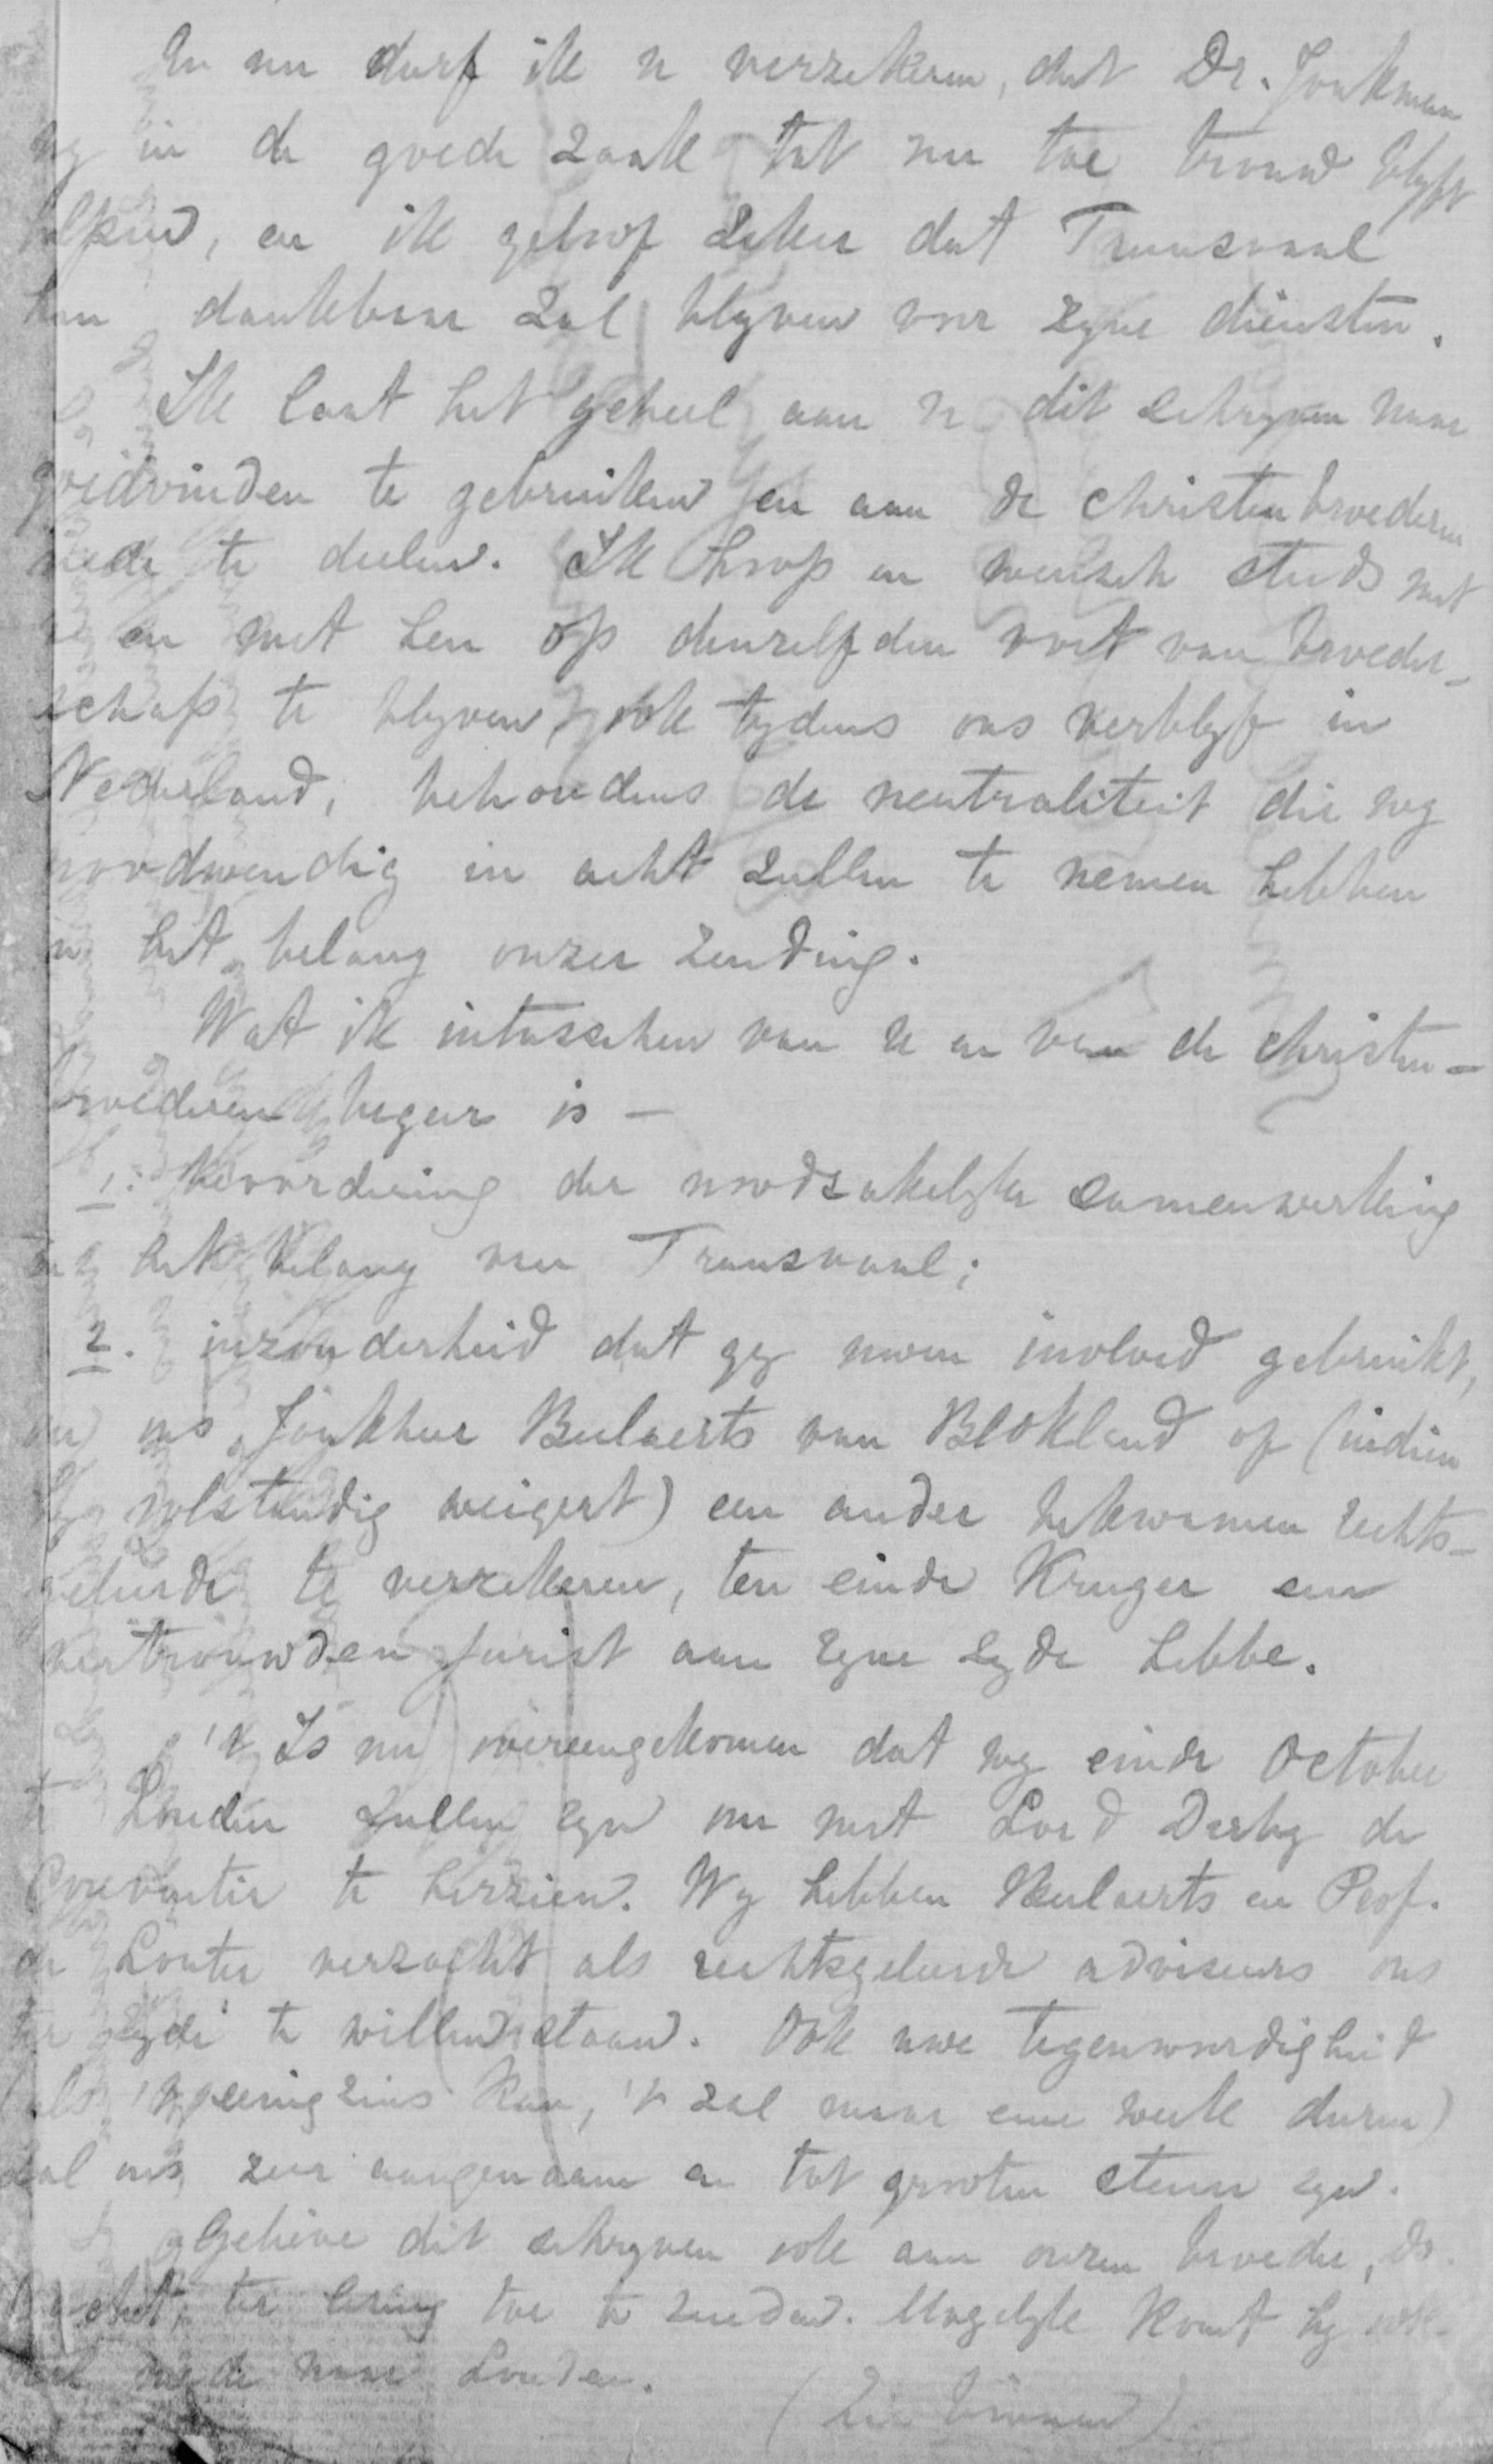 En nu durf ik u verzekeren, dat Dr. Jonkman
in de goede zaak tot nu toe trouw blyft
helpen, en ik geloof zeker dat Transvaal
hem dankbaar zal blyven voor zyne diensten.
Ik laat het geheel aan u dit schryven naar
goedvinden te gebruiken en aan de christenbroederen
mede te deelen. Ik hoop en wensch steeds met
en met hen op denzelfden voet van broeder-
schap te blyven, ook tydens ons verblyf in
Nederland, behoudens de neutraliteit die wy
noodwendig in acht zullen te nemen hebben
in het belang onzer zending.
Wat ik intusschen van u en van de christen-
broederen begeer is -
1. bevordering der noodzakelyke samenwerking
in het belang van Transvaal;
2. inzonderheid dat gy uwen invloed gebruikt,
om ons Jonkheer Beelaerts van Blokland of (indien
hy volstandig weigert) een ander bekwamen rechts-
geleerde te verzekeren, ten einde Kruger een
vertrouwden jurist aan zyne zyde hebbe.
't Is nu overeengekomen dat wy einde October
te Londen zullen zyn om met Lord Derby de
Conventie te herzien. Wy hebben Beelaerts en Prof.
de Louter verzocht als rechtsgeleerde adviseurs ons
ter zyde te willen staan. Ook uwe tegenwoordigheid
(als 't eenigzins kan, 't zal maar eene week duren)
zal ons zeer aangenaam en tot grooten steun zyn.
Gelieve dit schryven ook aan onzen broeder, Ds.
ter lezing toe te zenden. Mogelyk komt hy ook
mede naar Londen.
(Zie binnen)